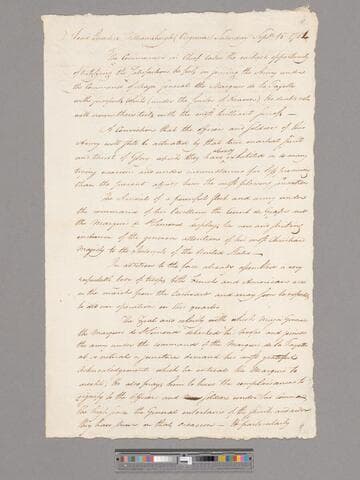 Head Quarters Williamsburgh Virginia Saturday Sept. 15 1781
The Commander in Chief takes the earliest opportunity
of testifying the satisfaction he feels on joining the Army under
the Command of Major general the Marquis de la Fayette
with prospects which (under the smiles of Heaven) he doubts not
will crown their toils with the most brilliant success —
A Conviction that the officers and soldiers of this
Army will still be actuated by that true martial spirit
and thirst of Glory which they have already exhibited on so many
trying occasions and under circumstances far less promising
than the present affords him the most pleasant sensation
The Arrival of a powerful fleet and army under
the command of his Excellency the Count de Grasse and
the Marquis de St Simon displays a new and striking
instance of the generous attention of his most Christian
Majesty to the Interests of the United States —
In addition to the force already assembled a very
respectable body of troops both French and American are
on the march from the Eastward and may soon be expected
to aid our operations in this quarter
The Zeal and celerity with which Major General
the Marquis de St Simond debarked his troops and joined
the army under the command of the Marquis de la Fayette
at so critical a juncture demand his most grateful
acknowledgements which he entreats the Marquis to
accept, He also prays him to have the complaisance to
signify to the officers and soldiers under his command
the high sense the General entertains of the
they have shewn on that occasion — He particularly